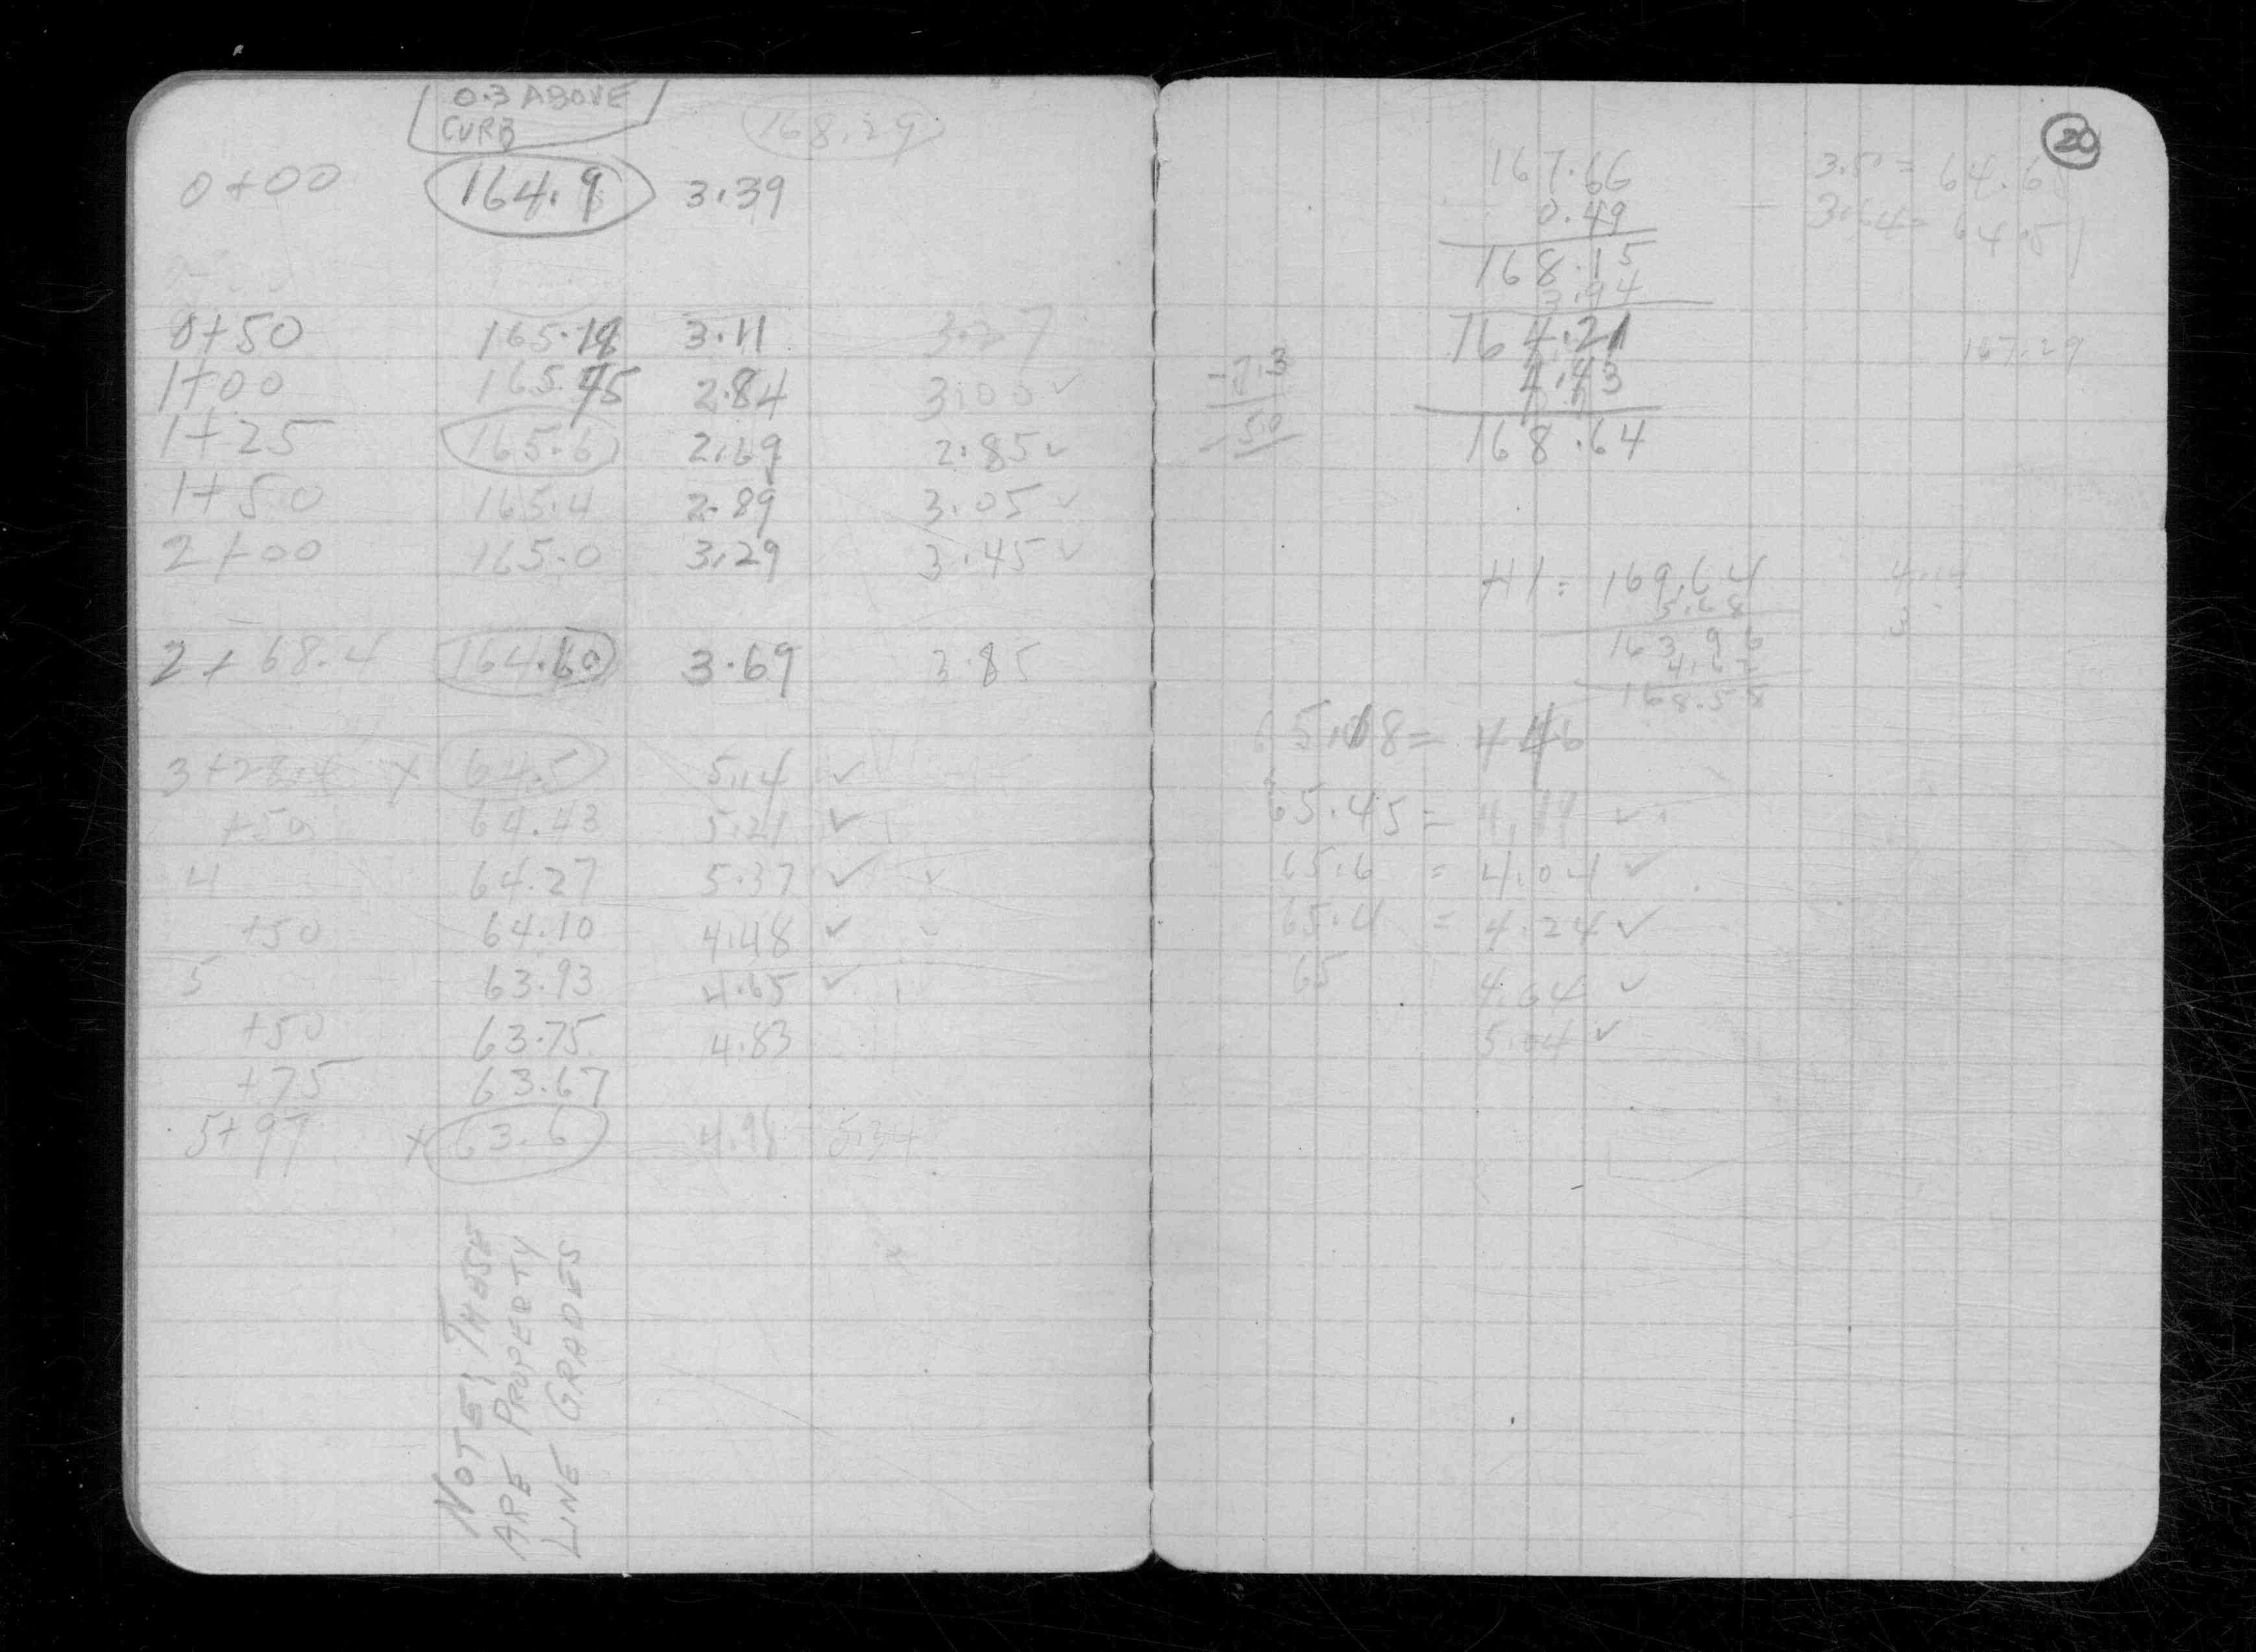 0.3 ABOVE
CURB
168.29
0+00 164.9 3.39
0+50 165.18 3.11 3.27
1+00 165.45 2.84 3.00 ✓
1+25 165.6 2.69 2.85 ✓
1+50 165.4 2.89 3.05 ✓
2+00 165.0 3.29 3.45 ✓
2+68.4 164.60 3.69 3.85
3+28.4 x 64.5 5.14 ✓
+50 64.43 5.21 ✓
4 64.27 5.37 ✓
+50 64.10 4.48 ✓
5 63.93 4.65 ✓
+50 63.75 4.83
+75 63.67
5+97 x 63.6 4.98 5.34
NOTE; THESE
ARE PROPERTY
LINE GRADES
20
167.66
0.49
168.15
3.94
164.21
4.43
168.64
3.64 = 64.51
167.29
HI = 169.64
5.68
163.96
4.62
168.58
65.18 = 4.46
65.45 = 4.19 ✓
65.6 = 4.04 ✓
65.4 = 4.24 ✓
65 4.64 ✓
5.04 ✓